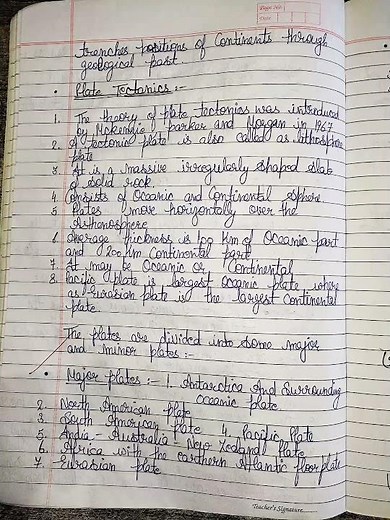 Page No.
Date
trenches positions of Continents through
geological past.
• Plate Tectonics :-
1. The theory of plate tectonics was introduced
by Mckenzie, parker and Morgan in 1967
2. A tectonic plate is also called as lithospheric
plate
3. It is a massive irregularly shaped slab
of solid rock.
4. Consists of Oceanic and Continental sphere
5. Plates move horizontally over the
Asthenosphere
6. Average thickness is 100 Km of Oceanic part
and 200 km Continental part
7. It may be Oceanic or Continental
8. Pacific plate is largest Oceanic plate where
as Eurasian plate is the largest Continental
plate.
The plates are divided into some major
and minor plates :-
• Major plates :- 1. Antarctica And Surrounding
oceanic plate
2. North American plate
3. South American plate 4. Pacific plate
5. India - Australia - New Zealand plate
6. Africa with the earthern Atlantic floor plate
7. Eurasian plate
Teacher's Signature